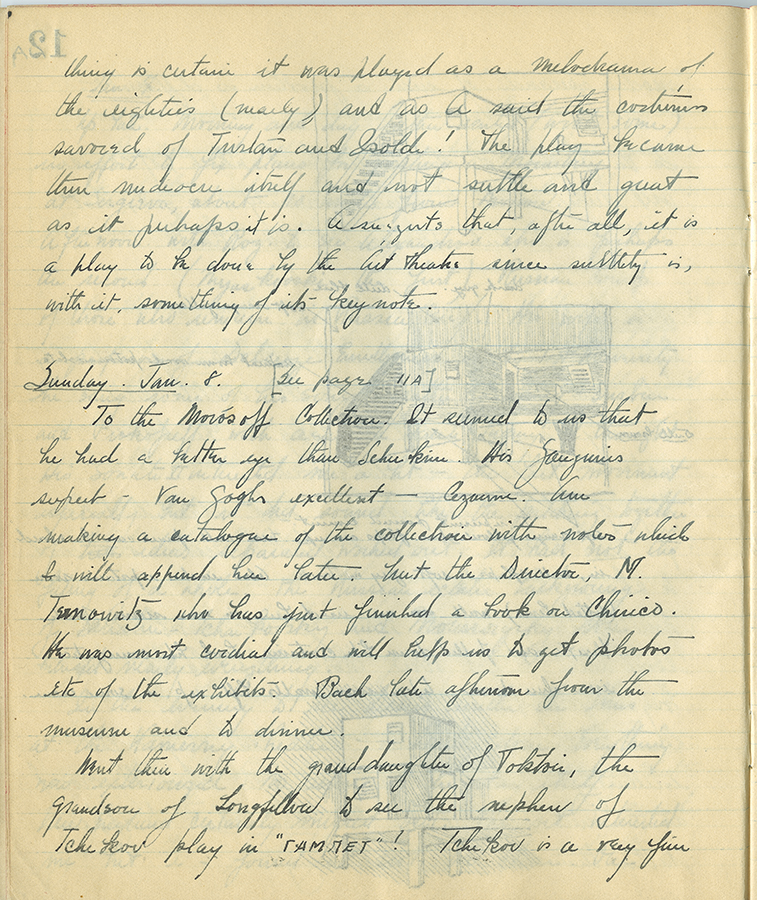 thing is certain it was played as a melodrama of
the eighties (really) and as A said the costumes
savored of Tristan and Isolde! The play became
then mediocre itself and not subtle and great
as it perhaps it is. A suggests that, after all, it is
a play to be done by the Art theatre since subtlety is,
with it, something of its keynote.
Sunday. Jan. 8. [See page 11A]
To the Morosoff Collection. It seemed to us that
he had a better eye than Schukine. His Gauguins
superb - Van Goghs excellent - Cezanne. Am
making a catalogue of the collection with notes which
I will append here later. Met the Director, M.
Ternowitz who has just finished a book on Chirico.
He was most cordial and will help us to get photos
etc of the exhibits. Back late afternoon from the
museum and to dinner.
Went then with the granddaughter of Tolstoi, the
grandson of Longfellow to see the nephew of
Tchekov play in "ГАМЛЕТ"! Tchekov is a very fine
12A